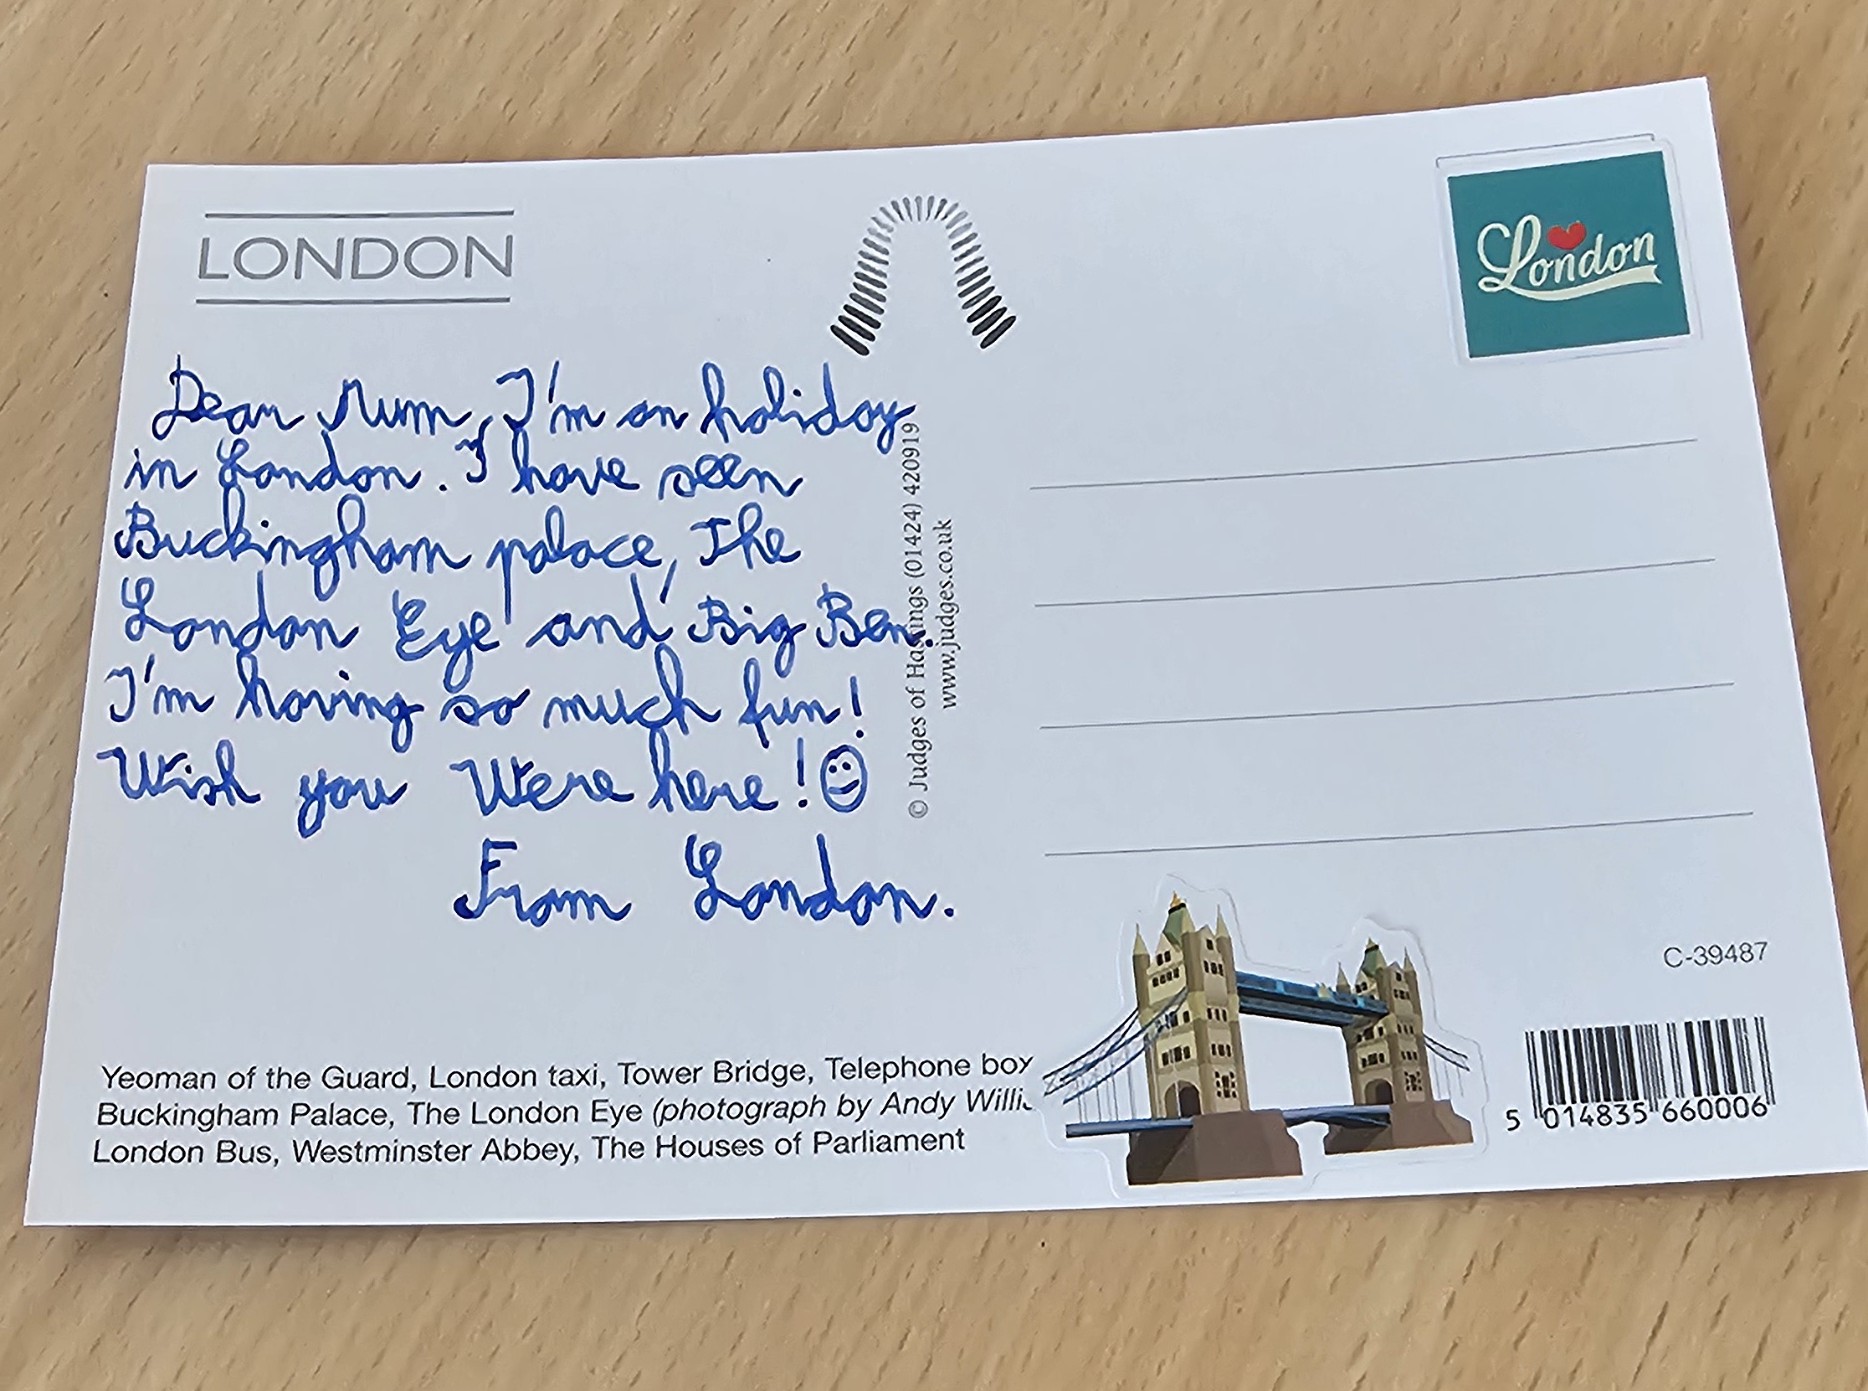 LONDON
London
Dear Mum, I'm on holiday
in London. I have seen
Buckingham palace, The
London Eye and Big Ben.
I'm having so much fun!
Wish you Were here!
From London.
© Judges of Hastings (01424) 420919
www.judges.co.uk
C-39487
5 014835 660006
Yeoman of the Guard, London taxi, Tower Bridge, Telephone box
Buckingham Palace, The London Eye (photograph by Andy
London Bus, Westminster Abbey, The Houses of Parliament